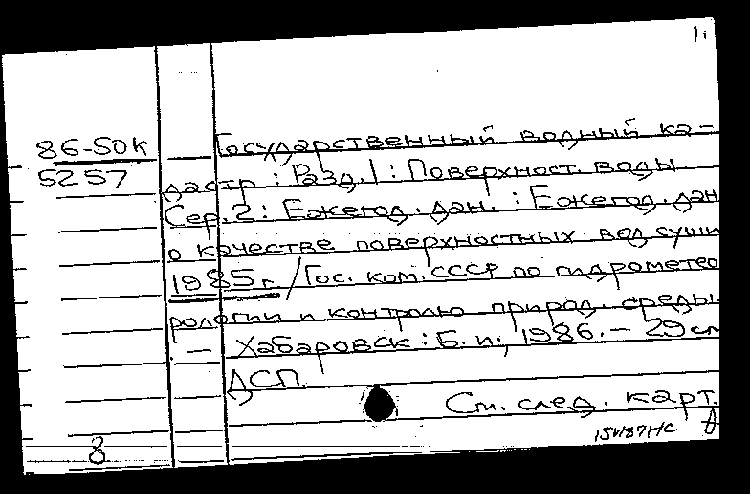 86-50к Государственный водный ка-
5257 дастр : Разд.1 : Поверхност. воды
Сер.2 : Ежегод. дан. : Ежегод. дан
о качестве поверхностных вод суши
1985 г. / Гос. ком. СССР по гидрометео
рологии и контролю природ. среды.
— Хабаровск : Б.и., 1986. — 29 см
ДСП
См. след. карт.
8